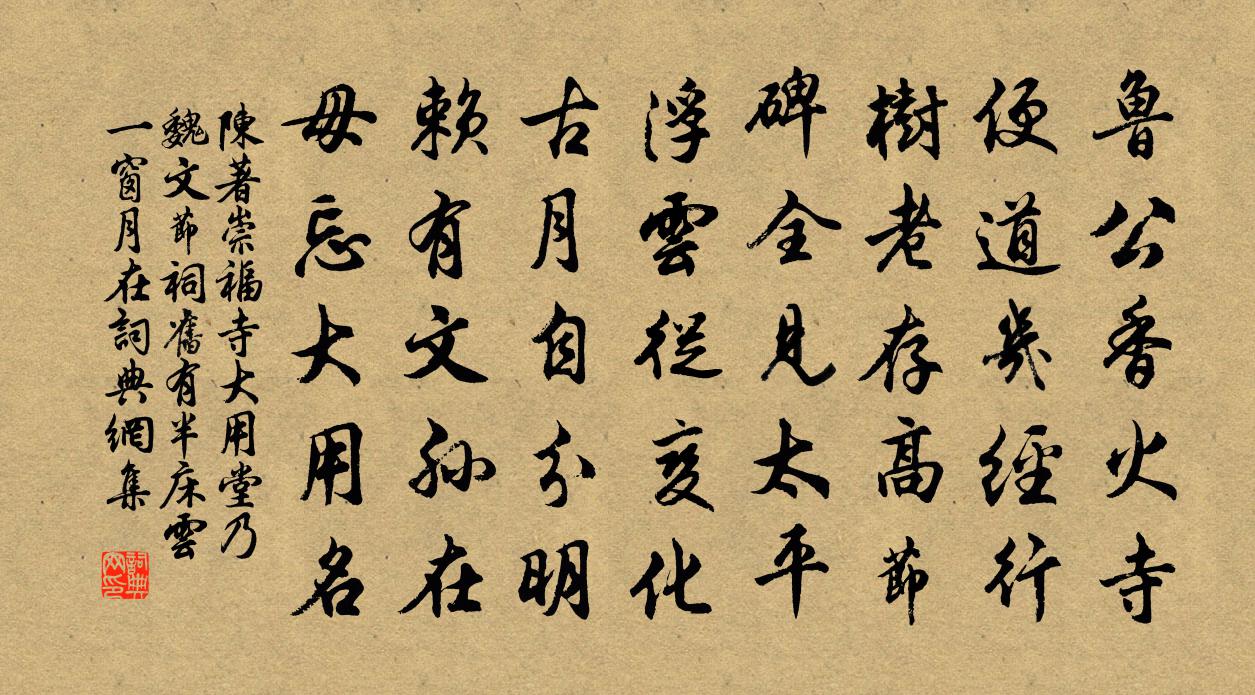 魯公香火寺
便道幾經行
樹老存高節
碑全見太平
浮雲從變化
古月自分明
賴有文孫在
毋忘大用名
陳著崇福寺大用堂乃
魏文節祠舊有半床雲
一窗月在詞典網集
詞典網印